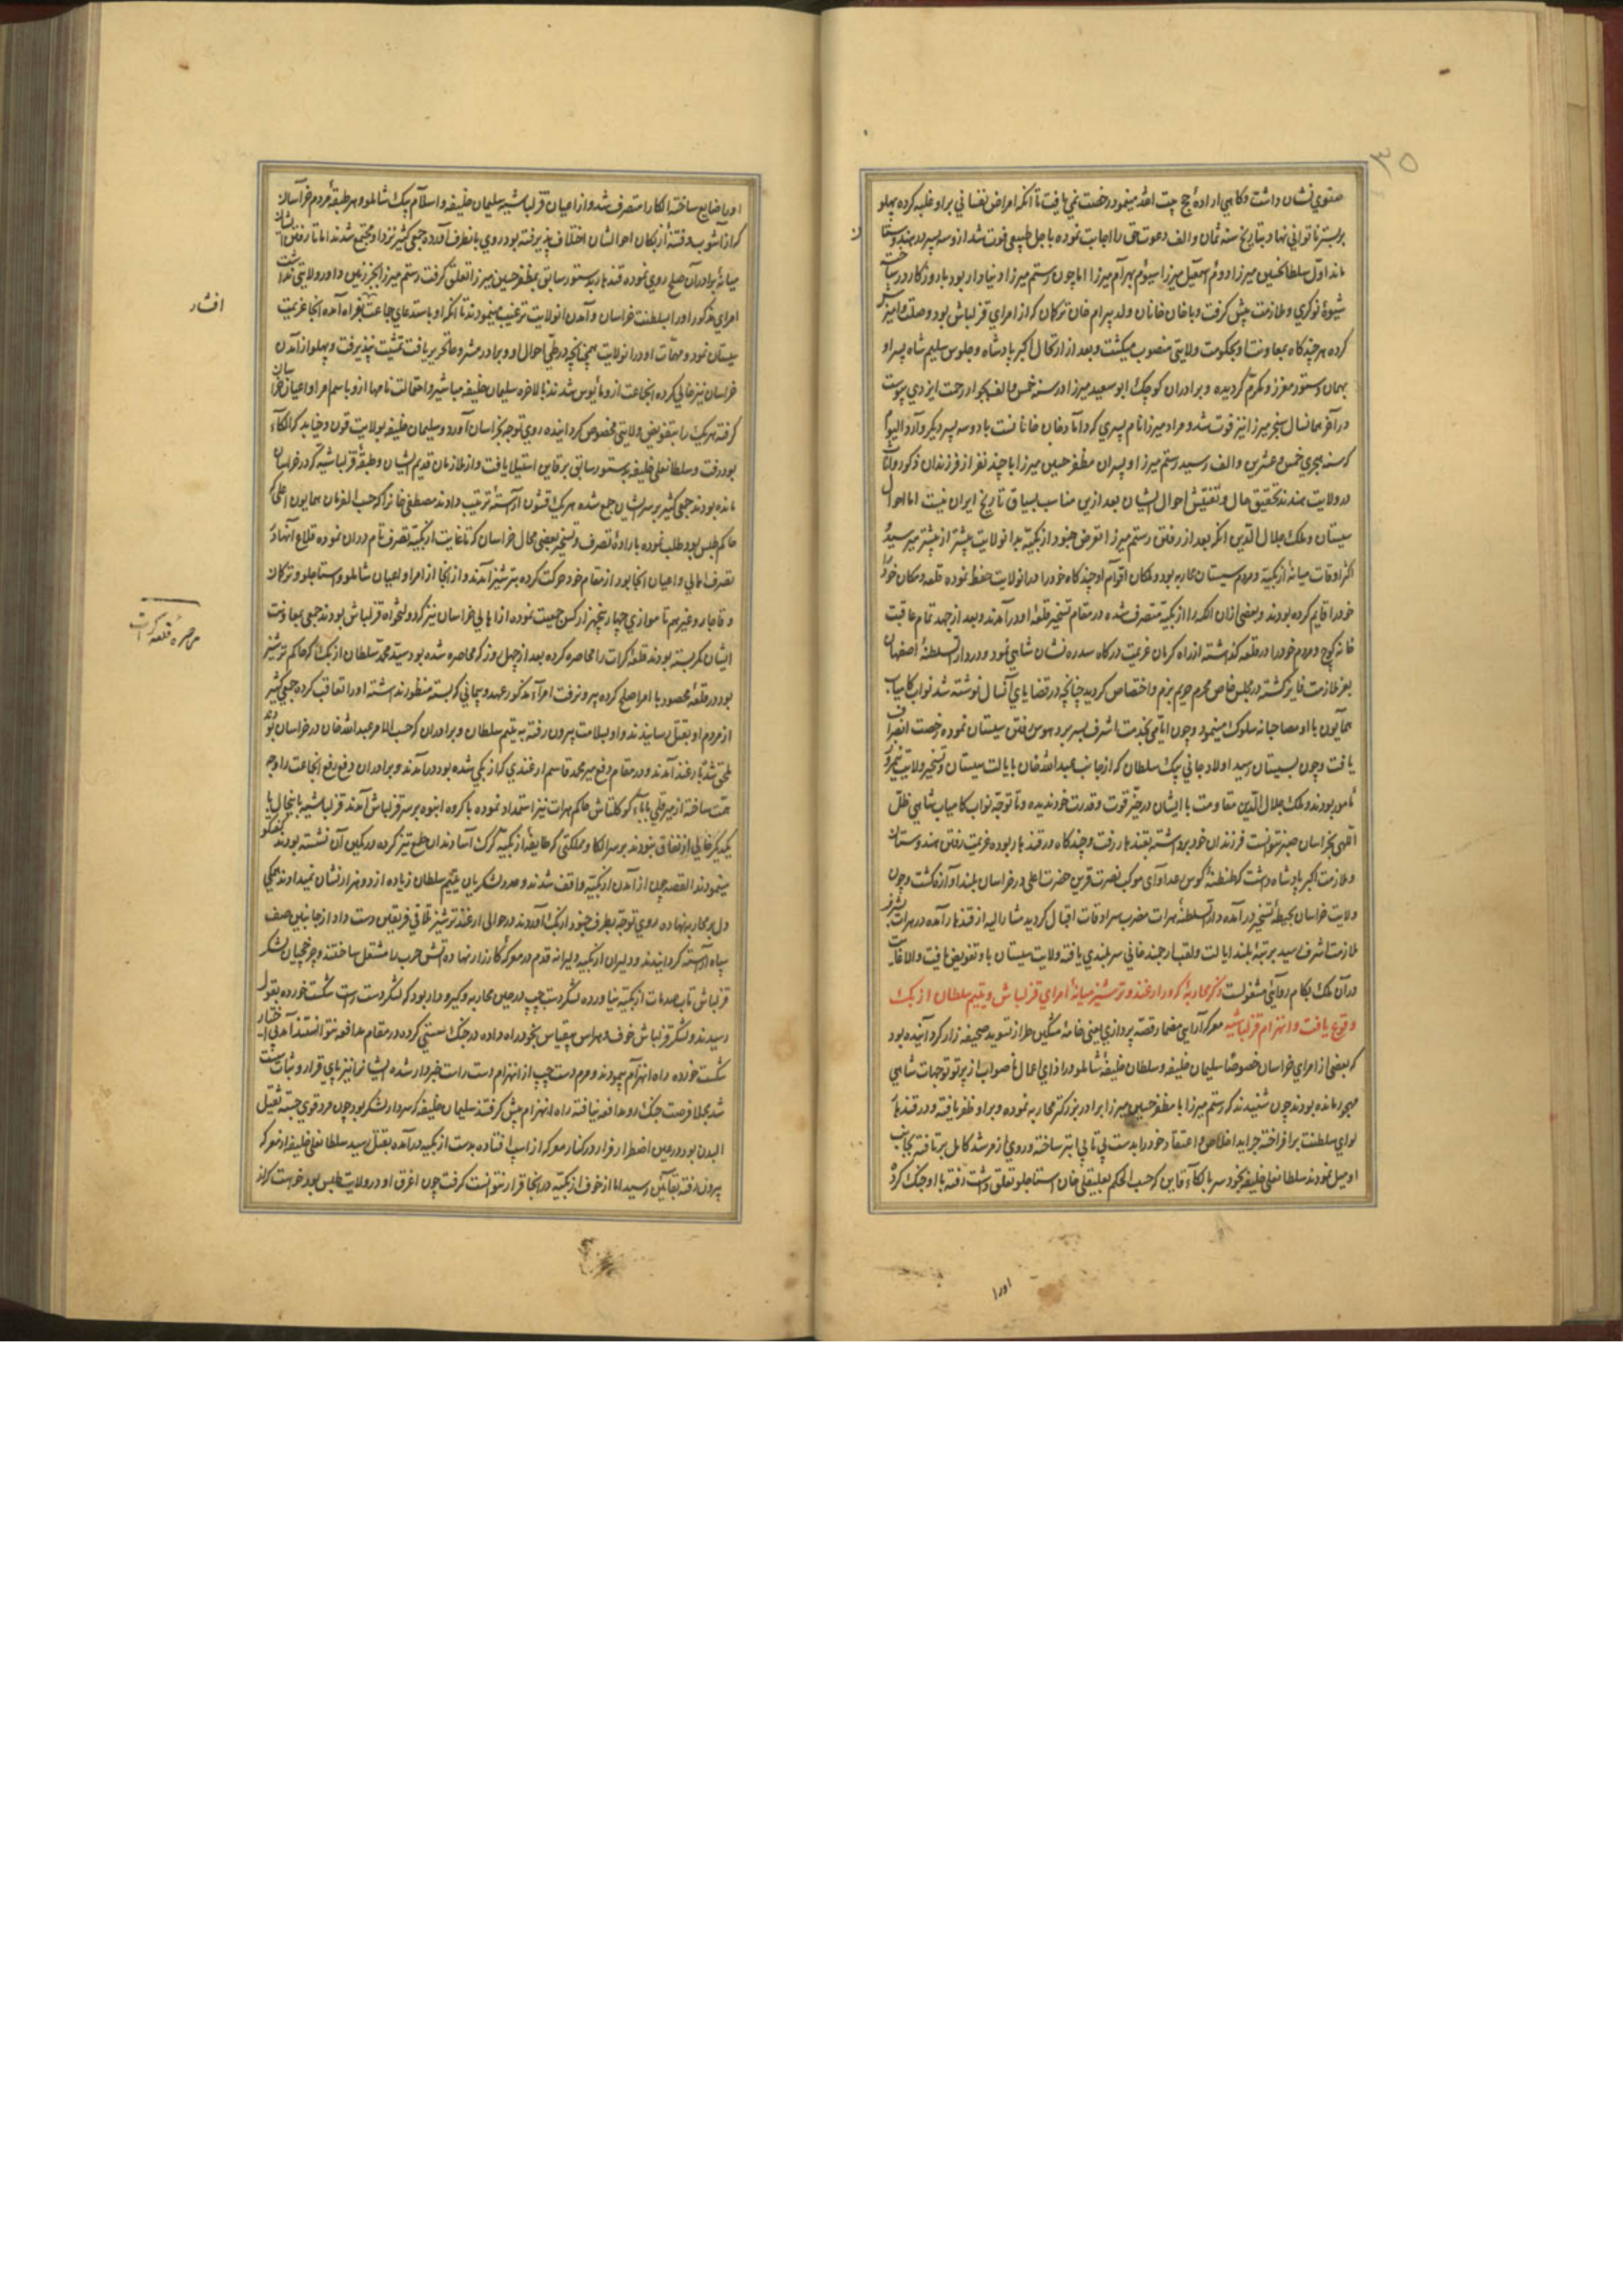 ۳۵
صفوی نشان داشت و گاهی اراده حج بیت الله مینمود رخصت نمی یافت تا آنکه امراض نفسانی بر او غلبه کرده پهلو
بر بستر ناتوانی نهاد و بتاریخ سنه ثمان و الف دعوت حق را اجابت نموده باجل طبیعی فوت شد از وسه پسر در هندوستان
ماند اول سلطان حسین میرزا دوم اسمعیل میرزا سیوم بهرام میرزا اما چون رستم میرزا دنیادار بود با روزگار در ساخت
شیوه نوکری و ملازمت پیش گرفت و با خان خانان ولد بیرام خان ترکمان که از امرای قزلباش بود وصلت و آمیزش
کرده هر چند گاه بمعاونت او بحکومت ولایتی منصوب میگشت و بعد از ارتحال اکبر پادشاه و جلوس سلیم شاه پسر او
بهمان دستور معزز و مکرم گردیده و برادران کوچک ابوسعید میرزا در سنه خمس و الف بجوار رحمت ایزدی پیوست
در آخر همانسال سنجر میرزا نیز فوت شد و مراد میرزا نام پسری که داماد خان خانانست با دو سه پسر دیگر دارد و الیوم
که سنه هجری خمس و عشرین و الف رسید رستم میرزا و پسران مظفر حسین میرزا با چند نفر از فرزندان ذکور و اناث
در ولایت هندند تحقیق حال و تفتیش احوال ایشان بعد ازین مناسب سیاق تاریخ ایران نیست اما احوال
سیستان و ملک جلال الدین آنکه بعد از رفتن رستم میرزا تعرض جنود ازبکیه بدانولایت بیشتر از پیشتر میرسید
اکثر اوقات میانه ازبکیه و مردم سیستان محاربه بود و ملکان اقوام او چند گاه خود را در انولایت حفظ نموده قلعه و مکان خود را
خود را قایم کرده بودند و بعضی از ان الکه را ازبکیه متصرف شده در مقام تسخیر قلعه او در آمدند و بعد از جهد تمام عاقبت
خانه کوچ و مردم خود را در قلعه گذاشته از راه کرمان عزیمت درگاه سدره نشان شاهی نمود و در دار السلطنه اصفهان
بعز ملازمت فایز گشته در مجلس خاص محرم حریم بزم و اختصاص گردید چنانچه در قضایای آنسال نوشته شد نواب کامیاب
همایون با او مصاحبانه سلوک مینمود و چون ایامی بخدمت اشرف بسر برد هوس رفتن سیستان نموده رخصت انصراف
یافت و چون بسیستان رسید اولاد جانی بیک سلطان که از جانب عبدالله خان بایالت سیستان و تسخیر ولایت نیمروز
مامور بودند و ملک جلال الدین مقاومت با ایشان در حیز قوت و قدرت خود ندیده و تا توجه نواب کامیاب شاهی ظل
اللهی بخراسان صبر نتوانست فرزندان خود برداشته بقندهار رفت و چند گاه در قندهار بوده عزیمت رفتن هندوستان
و ملازمت اکبر پادشاه داشت که طنطنه کوس و صدا و آوای موکب نصرت قرین حضرت اعلی در خراسان بلند آوازه گشت و چون
ولایت خراسان بحیطه تسخیر در آمده دار السلطنه هرات مضرب سرادقات اقبال گردید مشار الیه از قندهار آمده در هرات بشرف
ملازمت اشرف رسید بمرتبه بلند ایالت و لقب ارجمند خانی سربلندی یافته ولایت سیستان باو تفویض یافت و الا غایت
در آن ملک بکام روائی مشغولست ذکر محاربه که در ارغند و ترشیز میانه امرای قزلباش و یتیم سلطان ازبک
وقوع یافت و انهزام قزلباشیه معرکه آرایی مضمار قصه پردازی یعنی خامه مشکین طراز تسوید صحیفه زار گردانیده بود
که بعضی از امرای خراسان خصوصا سلیمان خلیفه و سلطان خلیفه شاملو در ازای اعمال ناصواب از پرتو توجهات شاهی
مهجور مانده بودند چون شنیدند که رستم میرزا با مظفر حسین میرزا برادر بزرگتر محاربه نموده و بر او ظفر یافته و در قندهار
لوای سلطنت بر افراخته جراید اخلاص و اعتقاد خود را بدست بی تابی ابتر ساخته و روی از مرشد کامل بر تافته بجانب
او میل نمودند سلطانعلی خلیفه بخود سر بالکاء قاین که حسب الحکم بعلیقلی خان استاجلو تعلق داشت رفته با او جنگ کرده
اورا
او را ضایع ساخته الکا را متصرف شد و از اعیان قزلباشیه سلیمان خلیفه و اسلام بیک شاملو و هر طبقه مردم خراسان
که از آشوب و فتنه ازبکان احوالشان اختلاف پذیرفته بود روی بانطرف آورده جمعی کثیر نزد او مجتمع شدند اما تا رفتن ایشان
میانه برادران صلح روی نموده قندهار بدستور سابق بمظفر حسین میرزا تعلق گرفت رستم میرزا بجز زمین داور ولایتی نداشت
امرای مذکور او را بسلطنت خراسان و آمدن انولایت ترغیب مینمودند تا آنکه او باستدعای جماعت بفراه آمده از آنجا عزیمت
افشار
سیستان نمود و مهمات او در انولایت همچنانچه در طی احوال او و برادر مشروحا تحریر یافت تمشیت نپذیرفت و پهلو از آمدن
خراسان نیز خالی کرده آنجماعت از و مایوس شدند بالاخره سلیمان خلیفه مباشر و احتمالت نامها از و باسم امرا و اعیان خراسان
گرفته هر یک را بتفویض ولایتی مخصوص گردانیده روی توجه بخراسان آورد و سلیمان خلیفه بولایت تون و جنابد که الکاء
بود رفت و سلطانعلی خلیفه بدستور سابق بر قاین استیلا یافت و از ملازمان قدیم ایشان و طبقه قزلباشیه که در خراسان
مانده بودند جمعی کثیر بر سر ایشان جمع شده هر یک قشون آراسته ترتیب دادند مصطفی خانرا که حسب الفرمان همایون اعلی
حاکم طبس بود طلب نموده باراده تصرف و تسخیر بعضی محال خراسان که تا غایت ازبکیه تصرف تام در آن نموده قلاع آنها در
تصرف اهالی و اعیان آنجا بود از مقام خود حرکت کرده بترشیز آمدند و از آنجا از امرا و اعیان شاملو و استاجلو و ترکمان
و قاجار و غیرهم تا موازی چهار پنجهزار کس جمعیت نموده از اهالی خراسان نیز که دولتخواه قزلباش بودند جمعی بمعاونت
محاصره قلعه کرات
ایشان کمر بسته بودند قلعه کرات را محاصره کرده بعد از چهل روز که محاصره شده بود سید محمد سلطان ازبک که حاکم ترشیز
بود در قلعه محصور با امرا صلح کرده بیرون رفت امرآء مذکور عهد و پیمانی که بسته منظور نداشته او را تعاقب کرده جمعی کثیر
از مردم او بقتل رسانیدند و او بسلامت بیرون رفته به یتیم سلطان و برادران که حسب الامر عبدالله خان در خراسان بودند
ملحق شد بارغند آمدند و در مقام دفع میر محمد قاسم ارغندی که ازبکی شده بود در آمدند و برادران دفع رفع آنجماعت را وجه
همت ساخته از میر قلی بابآء کوکلتاش حاکم هرات نیز استمداد نموده با گروه انبوه بر سر قزلباش آمدند قزلباشیه با اینحال با
یکدیگر خالی از نفاقی نبودند بر سر الکا و مملکتی که طایفه ازبکیه گرگ آسا دندان طمع تیز کرده در کمین آن نشسته بودند گفتگو
مینمودند القصه چون از آمدن ازبکیه واقف شدند و عدد لشکریان یتیم سلطان زیاده از دو هزار نشان نمیدادند همگی
دل بر محاربه نهاده روی توجه بطرف جنود ازبک آوردند در حوالی ارغند ترشیز تلاقی فریقین دست داد از جانبین صف
سپاه آراسته گردانیدند و دلیران ازبکیه دلیرانه قدم در معرکه کارزار نهاده آتش حرب را مشتعل ساختند و چرخچیان لشکر
قزلباش تاب صدمات ازبکیه نیاورده لشکر دست چپ در حین محاربه و گیرودار بود که لشکر دست راست شکست خورده بقول
رسیدند و لشکر قزلباش خوف و هراس بیقیاس بخود راه داده در جنگ سستی کرده در مقام مدافعه نتوانستند آمد بی اختیار
شکست خورده راه انهزام پیمودند و مردم دست چپ از انهزام دست راست خبردار شده ایشانرا نیز پای قرار و ثبات سست
شد بمجلا فرصت جنگ و مدافعه نیافته راه انهزام پیش گرفتند سلیمان خلیفه که سردار لشکر بود چون مرد قوی جثه ثقیل
البدن بود در عین اضطرار فرار در کنار معرکه از اسپ افتاده بدست ازبکیه در آمده بقتل رسید سلطانعلی خلیفه از معرکه
بیرون رفته بقاین رسید اما از خوف ازبکیه در آنجا قرار نتوانست گرفت چون اغرق او در ولایت طبس بود خواست که از